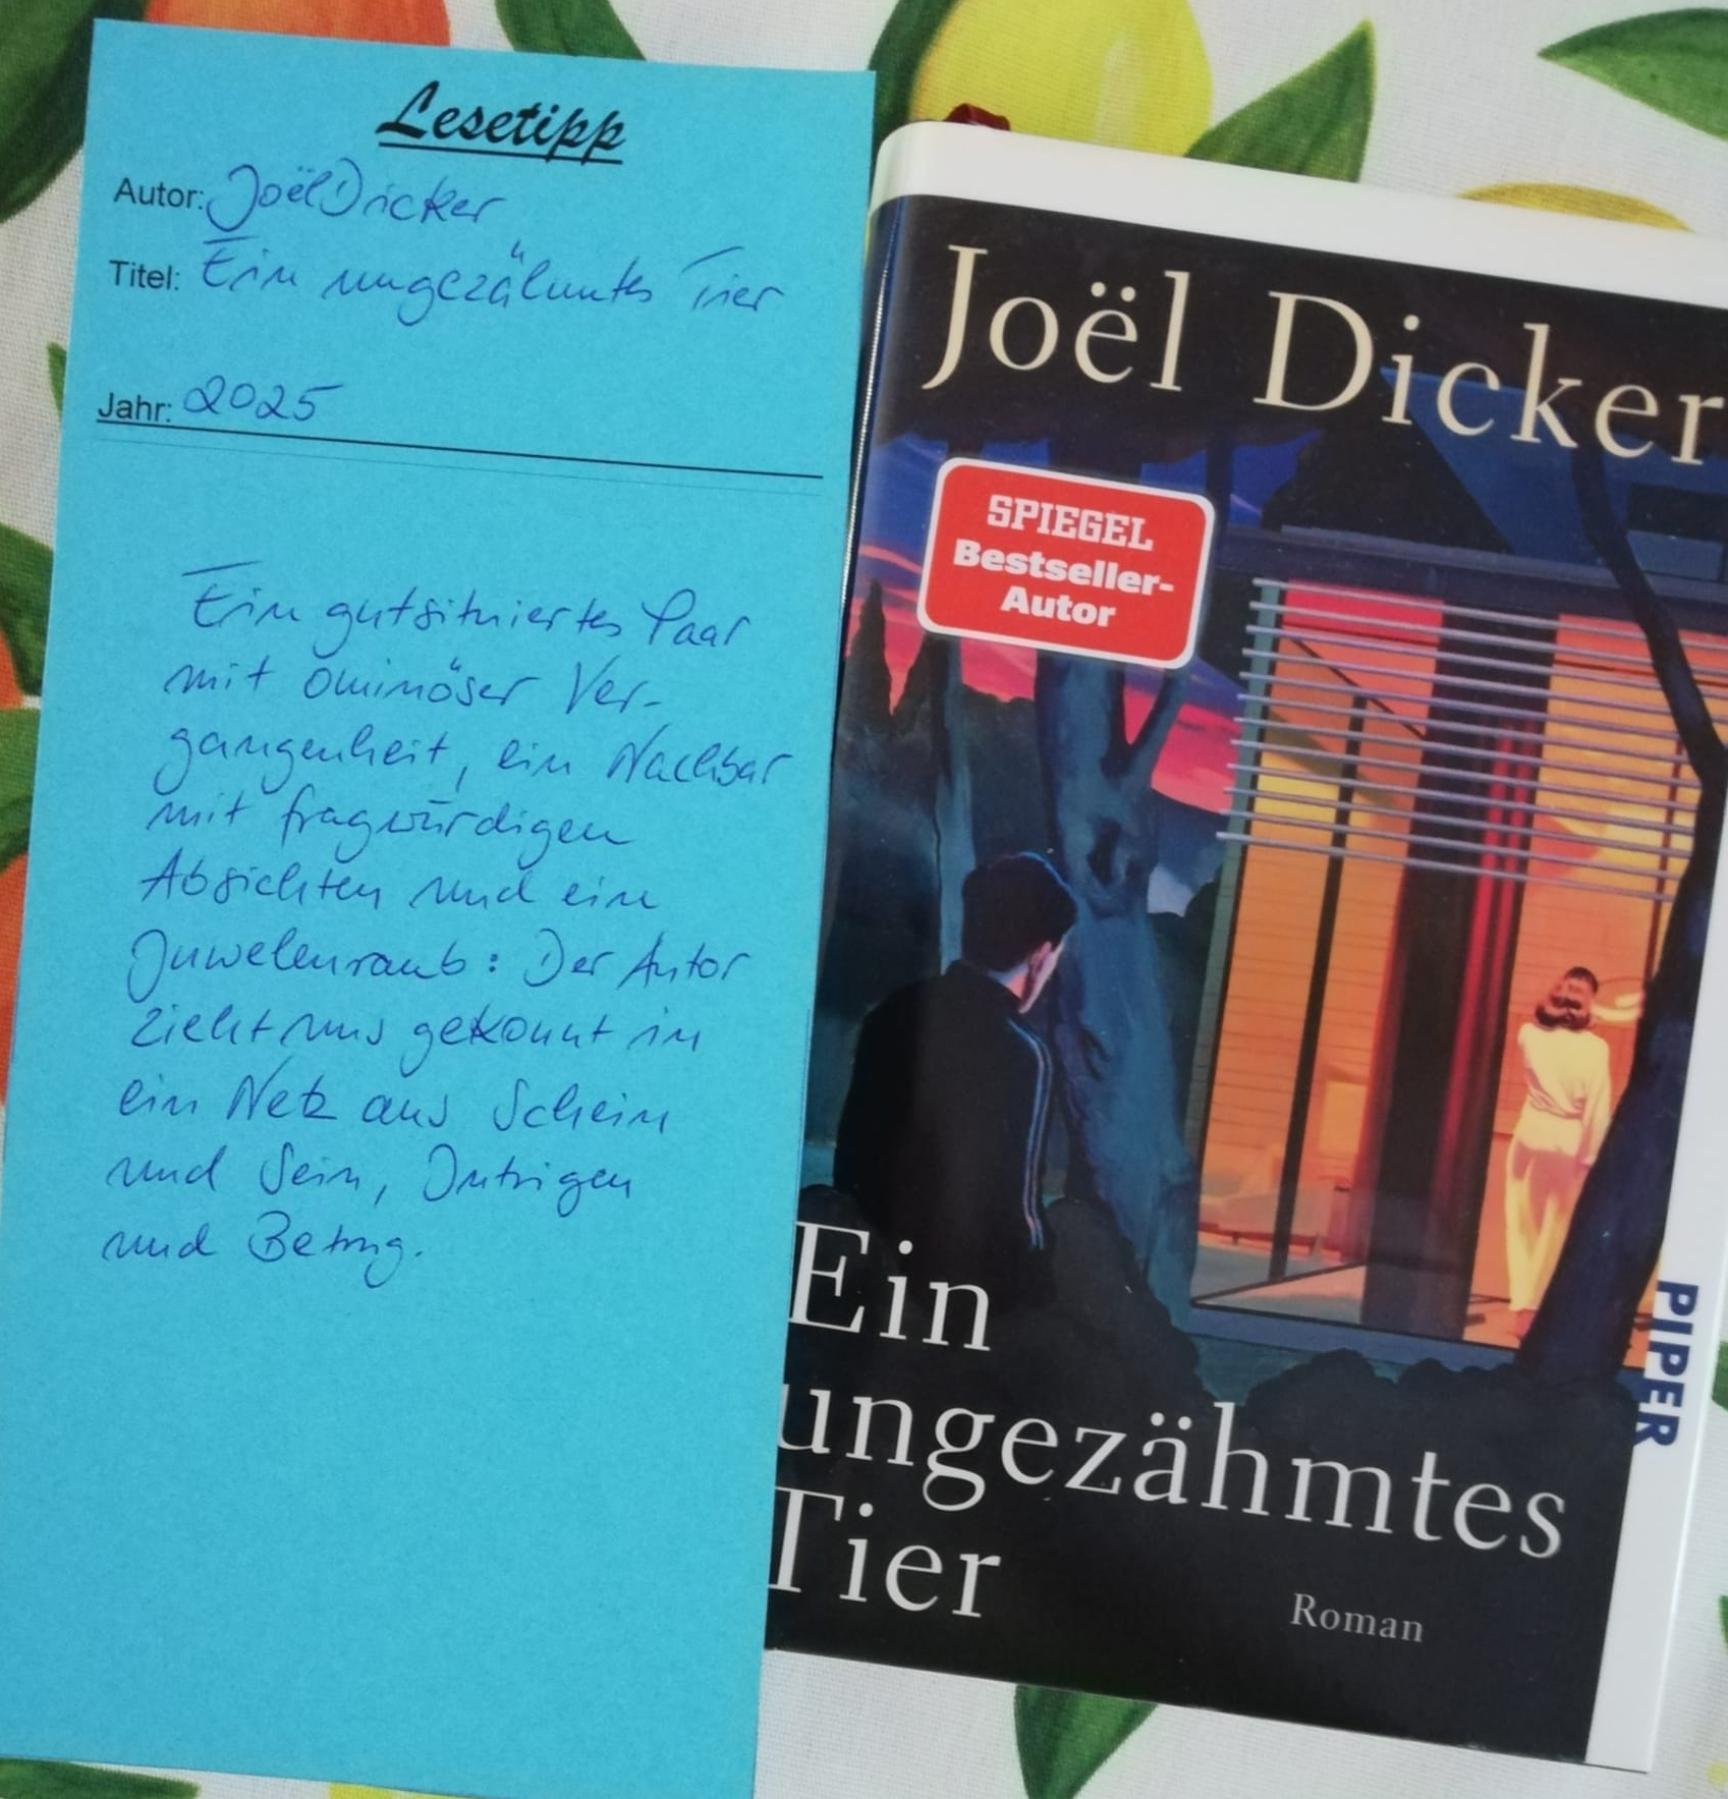 Lesetipp
Autor: Joël Dicker
Titel: Ein ungezähmtes Tier
Jahr: 2025
Ein gutsituiertes Paar
mit ominöser Ver-
gangenheit, ein Nachbar
mit fragwürdigen
Absichten und ein
Juwelenraub: Der Autor
zieht uns gekonnt in
ein Netz aus Schein
und Sein, Intrigen
und Betrug.
Joël Dicker
SPIEGEL
Bestseller-
Autor
Ein
ungezähmtes
Tier
Roman
PIPER